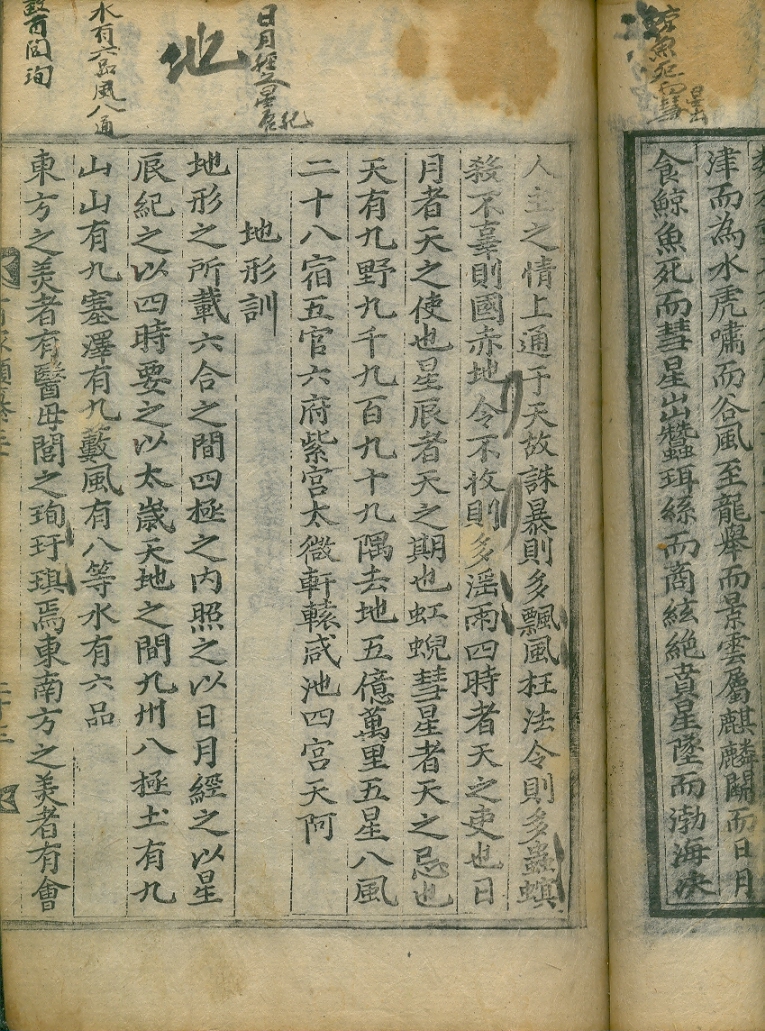 津而為水虎嘯而谷風至龍舉而景雲屬麒麟鬪而日月
食鯨魚死而彗星出蠶珥絲而商絃絶賁星墜而渤海决
人主之情上通于天故誅暴則多飄風枉法令則多蟲螟
殺不辜則國赤地令不收則多淫雨四時者天之吏也日
月者天之使也星辰者天之期也虹蜺彗星者天之忌也
天有九野九千九百九十九隅去地五億萬里五星八風
二十八宿五官六府紫宮太微軒轅咸池四宮天阿
地形訓
地形之所載六合之間四極之内照之以日月經之以星
辰紀之以四時要之以太歲天地之間九州八極土有九
山山有九塞澤有九藪風有八等水有六品
東方之美者有醫毋閭之珣玗琪焉東南方之美者有會
魚死而彗
星出
日月經之星辰
紀
地
水有六品風八通
毉百閭珣